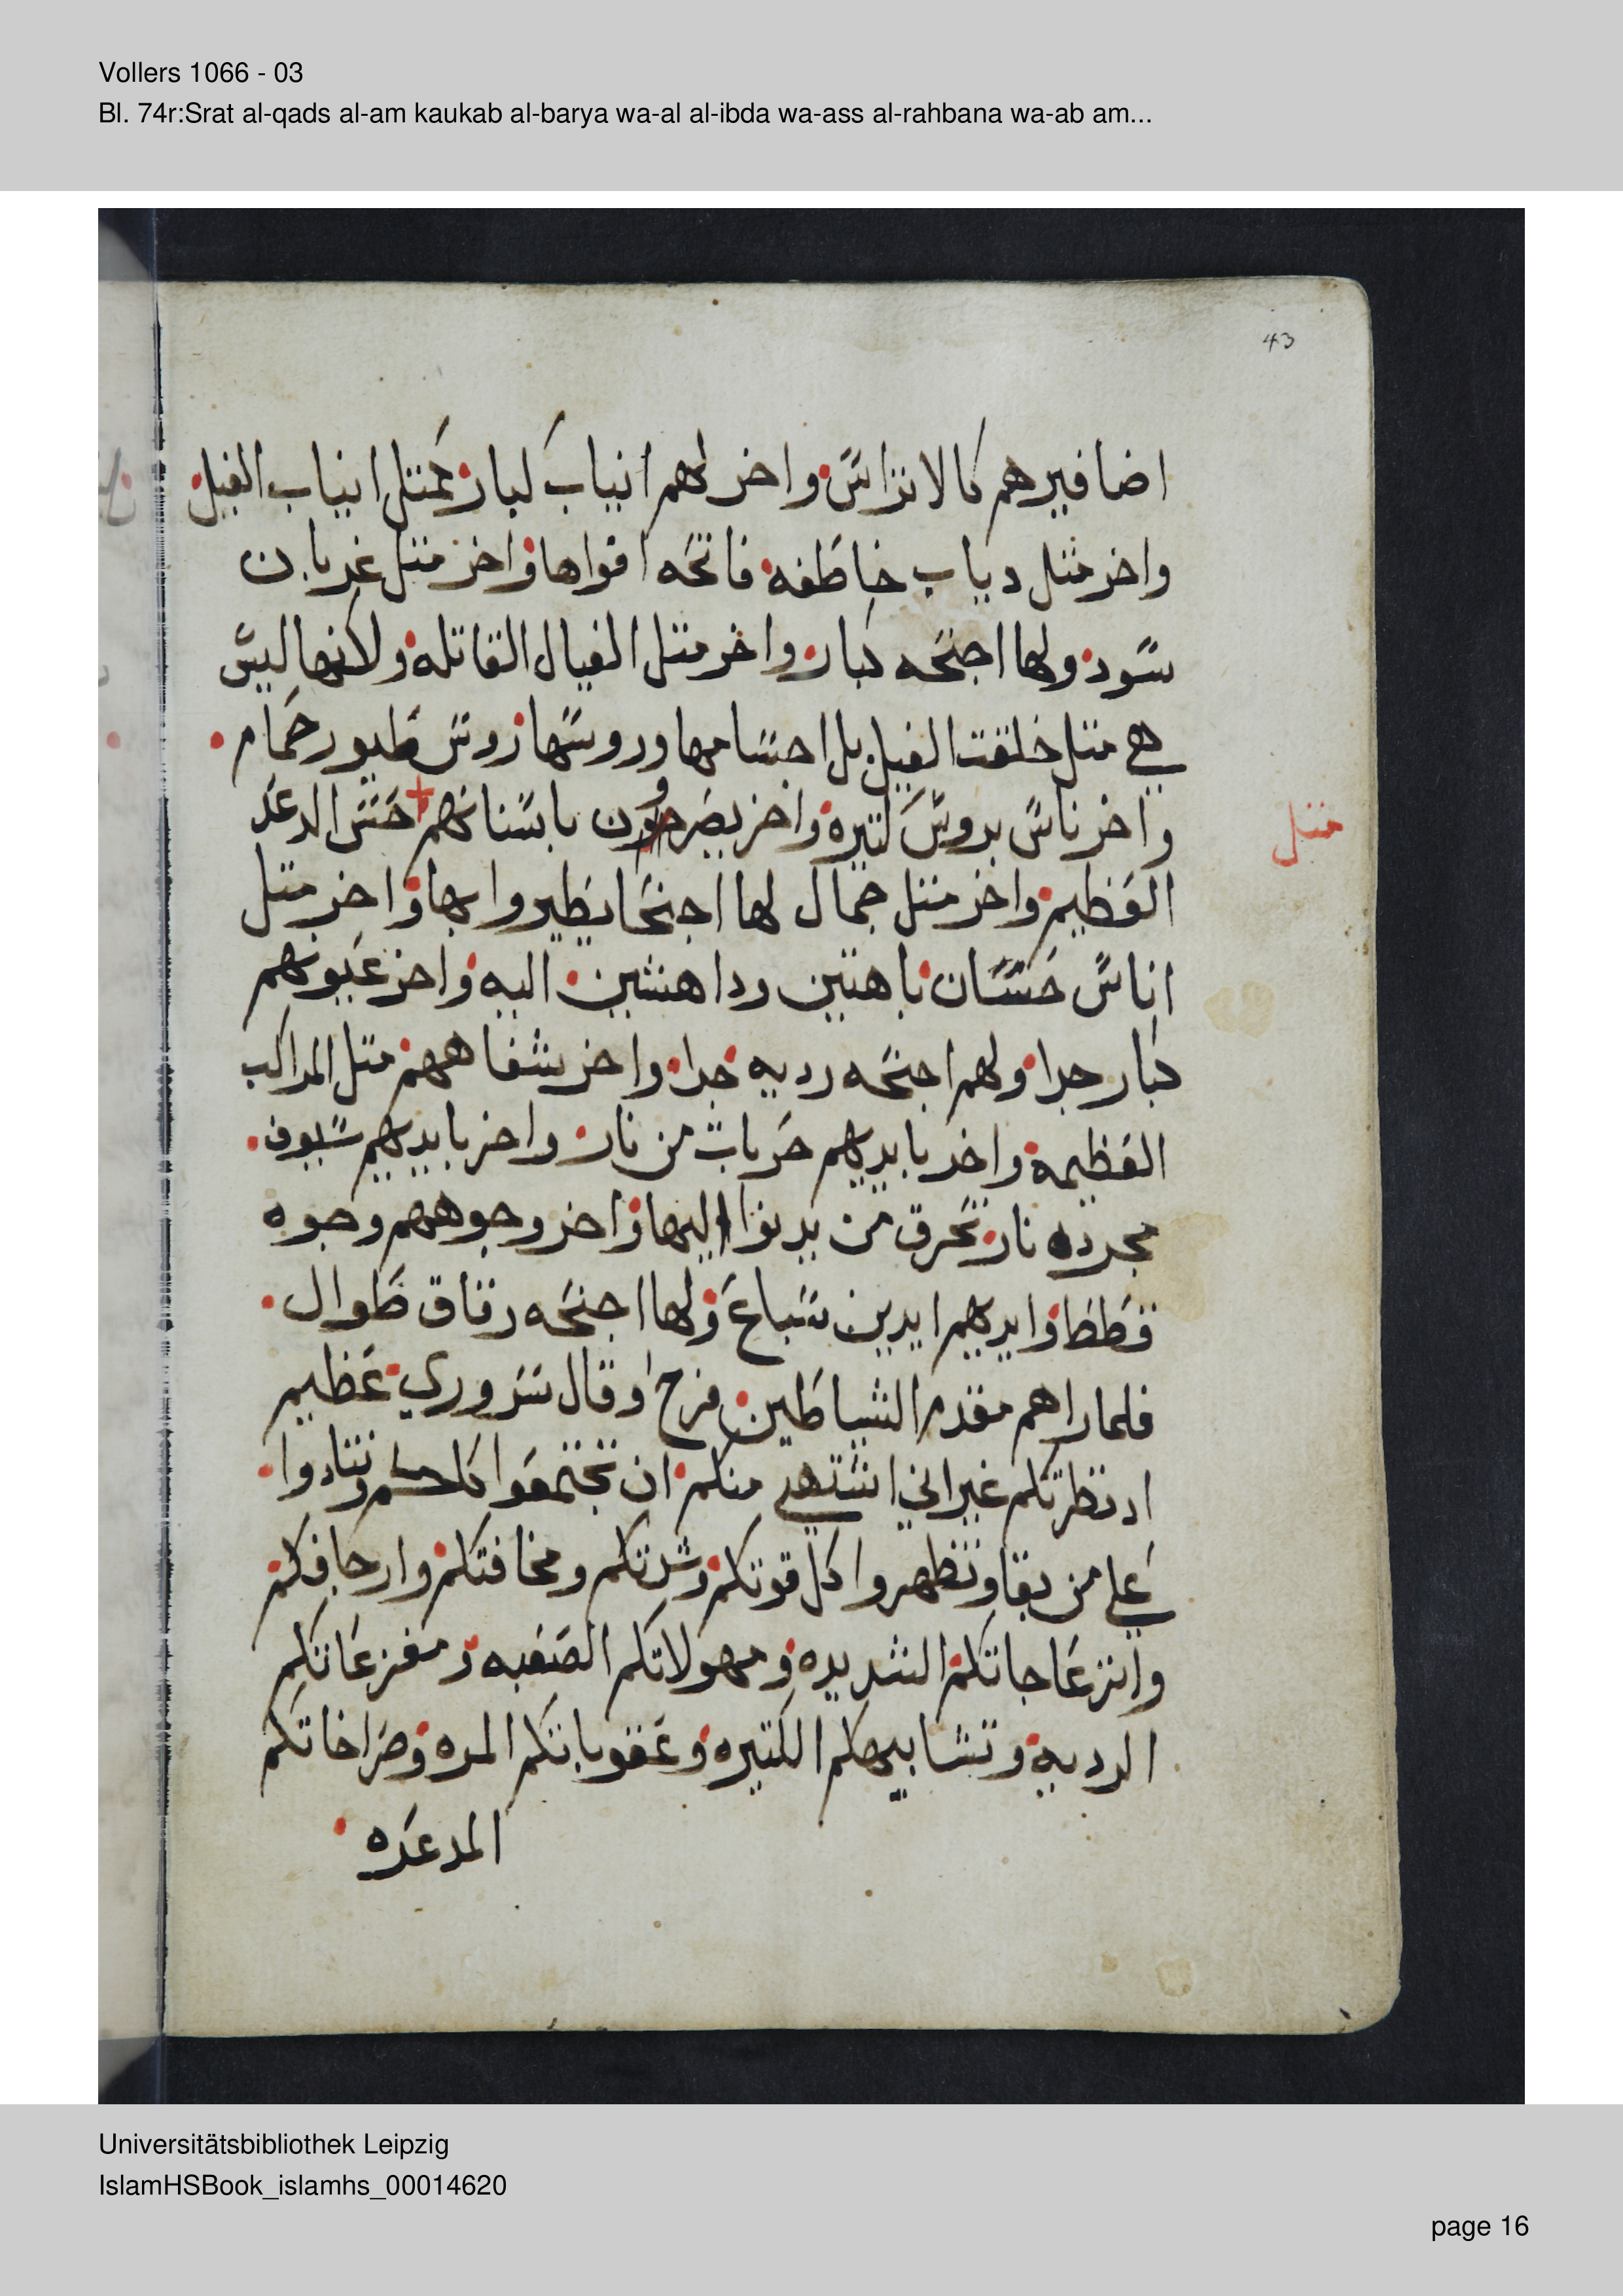 Vollers 1066 - 03
Bl. 74r:Srat al-qads al-am kaukab al-barya wa-al al-ibda wa-ass al-rahbana wa-ab am...
43
اضافيرهم كالاتراس واخر لهم انياب كبار كمتل انياب الفيل
واخر متل دياب خاطفه فاتحه افواها واخر متل غربان
سود ولها اجنحه كبار واخر متل الفيال القاتله ولاكنها ليس
هي متل خلقت الفيل بل اجسامها وروسها روس طيور حمام
واخر ناس بروس كتيره واخر يصرخون باسنانهم حس الرعد
متل
العظيم واخر متل جمال لها اجنحا يطيروا بها واخر متل
اناس حسان باهتين وداهشين اليه واخر عيونهم
كبار جدا ولهم اجنحه رديه جدا واخر شفاههم متل المراكب
العظيمه واخر بايديهم حربات من نار واخر بايديهم سيوف
مجرده نار تحرق من يدنوا اليها واخر وجوههم وجوه
قطط وايديهم ايدين سباع ولها اجنحه رقاق طوال
فلما راهم مقدم الشياطين فرح وقال سروري عظيم
اد نظرتكم غير اني اشتهي منكم ان تجتمعوا كلكم وتنادوا
علي من بقا وتظهروا كل قوتكم وشدتكم ومخافتكم وارجافكم
وانزعاجاتكم الشديده ومهولاتكم الصعبه ومفزعاتكم
الرديه وتشابيهكم الكتيره وعقوباتكم المره وصراخاتكم
المرعده
Universitätsbibliothek Leipzig
IslamHSBook_islamhs_00014620
page 16